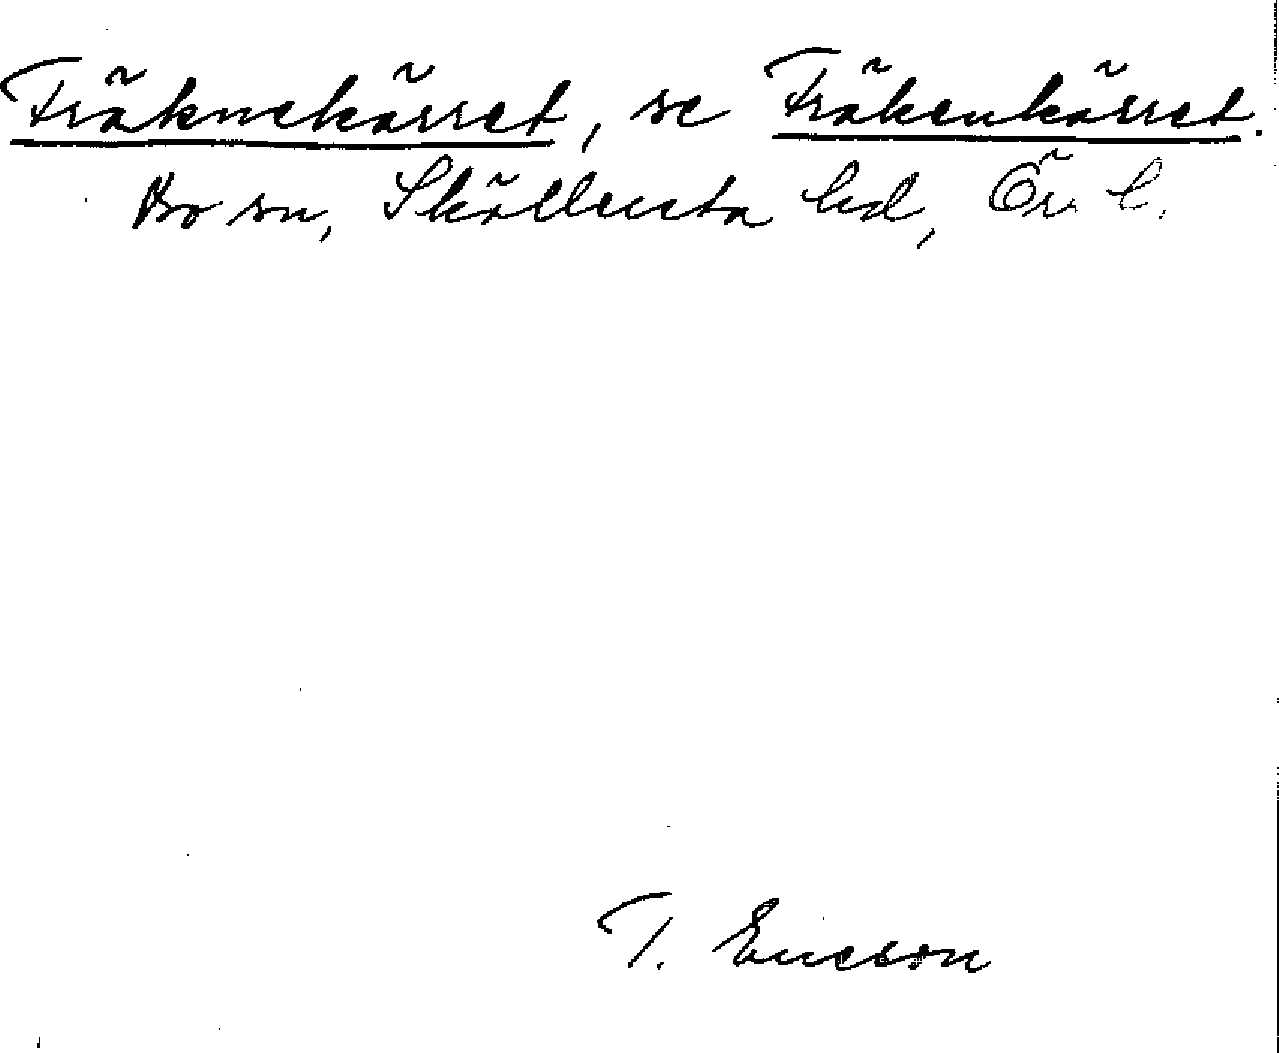 Fräknekärret, se Fräkenkärret.
Bo sn, Sköllersta hd, Ör. l.
T. Ericson